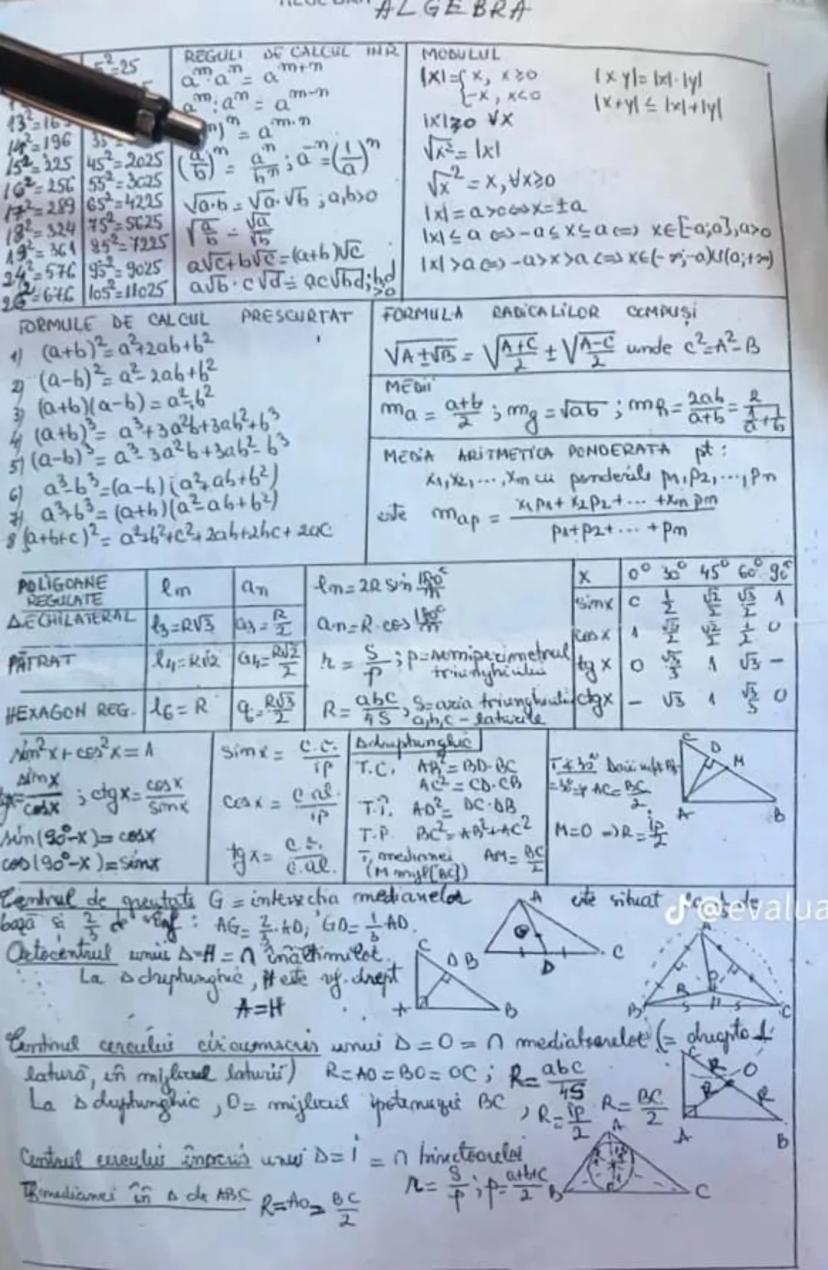 ALGEBRA
5²=25
13²=16
14²=196
15²=225
16²=256
17²=289
18²=324
19²=361
24²=576
26²=676
35²=
45²=2025
55²=3025
65²=4225
75²=5625
85²=7225
95²=9025
105²=11025
REGULI DE CALCUL ÎN R
a^m·a^n = a^(m+n)
a^m:a^n = a^(m-n)
)^n = a^(m·n)
(a/b)^n = a^n/b^n ; a^(-n) = (1/a)^n
√(a·b) = √a·√b ; a,b>0
√(a/b) = √a/√b
a√c+b√c = (a+b)√c
a√b · c√d = ac√(bd); b,d >0
MODULUL
|x| = { x, x≥0
-x, x<0
|x|≥0 ∀x
√x² = |x|
√x² = x, ∀x≥0
|x| = a>0 ⇔ x=±a
|x| ≤ a ⇔ -a ≤ x ≤ a ⇔ x∈[-a;a], a>0
|x| > a ⇔ -a > x > a ⇔ x∈(-∞;-a)U(a;+∞)
|x y| = |x|·|y|
|x+y| ≤ |x|+|y|
FORMULE DE CALCUL PRESCURTAT
1) (a+b)² = a²+2ab+b²
2) (a-b)² = a²-2ab+b²
3) (a+b)(a-b) = a²-b²
4) (a+b)³ = a³+3a²b+3ab²+b³
5) (a-b)³ = a³-3a²b+3ab²-b³
6) a³-b³ = (a-b)(a²+ab+b²)
7) a³+b³ = (a+b)(a²-ab+b²)
8 (a+b+c)² = a²+b²+c²+2ab+2bc+2ac
FORMULA RADICALILOR COMPUȘI
√(A±√B) = √((A+C)/2) ± √((A-C)/2) unde c²=A²-B
MEDII
ma = (a+b)/2 ; mg = √ab ; mh = 2ab/(a+b) = 2/(1/a+1/b)
MEDIA ARITMETICA PONDERATA pt:
x1,x2,...,xn cu ponderile p1,p2,...,pn
este map = (x1p1+x2p2+...+xnpn)/(p1+p2+...+pn)
POLIGOANE REGULATE ln an
Δ ECHILATERAL l3=R√3 a3=R/2
PĂTRAT l4=R√2 a4=R√2/2
HEXAGON REG. l6=R a6=R√3/2
ln = 2R sin 180°/n
an = R·cos 180°/n
r = S/p ; p=semiperimetrul triunghiului
R = abc/4S ; S=aria triunghiului
a,b,c - laturile
x 0° 30° 45° 60° 90°
sinx 0 1/2 √2/2 √3/2 1
cosx 1 √3/2 √2/2 1/2 0
tgx 0 √3/3 1 √3 -
ctgx - √3 1 √3/3 0
sin²x+cos²x=1
tgx = sinx/cosx ; ctgx = cosx/sinx
sin(90°-x) = cosx
cos(90°-x) = sinx
sinx = c.o./ip
cosx = c.al./ip
tgx = c.o./c.al.
Δ dreptunghic
T.C. AB²=BD·BC
AC²=CD·CB
T.Î. AD²=DC·DB
T.P. BC²=AB²+AC²
T. medianei AM=BC/2
(M mijl[BC])
T∢30° Dacă
=30° ⇒ AC=BC/2
M=O ⇒ R=ip/2
C D M A B
Centrul de greutate G = intersecția medianelor este situat
bază și 2/3 de vârf: AG=2/3 AD, GD=1/3 AD.
A G B D C
@evalua
Ortocentrul unui Δ=H=∩ înălțimilor.
La Δ dreptunghic, H este vf. drept
A=H
C D A B
A O R B C
Centrul cercului circumscris unui Δ = O = ∩ mediatoarelor (= dreapta ⊥
latură, în mijlocul laturii) R=AO=BO=OC ; R=abc/4S
La Δ dreptunghic, O= mijlocul ipotenuzei BC, R=ip/2 R=BC/2
C R O R R A B
Centrul cercului înscris unui Δ = I = ∩ bisectoarelor
r = S/p ; p=(a+b+c)/2
T. medianei în Δ dr ABC R=AO=BC/2
A B C